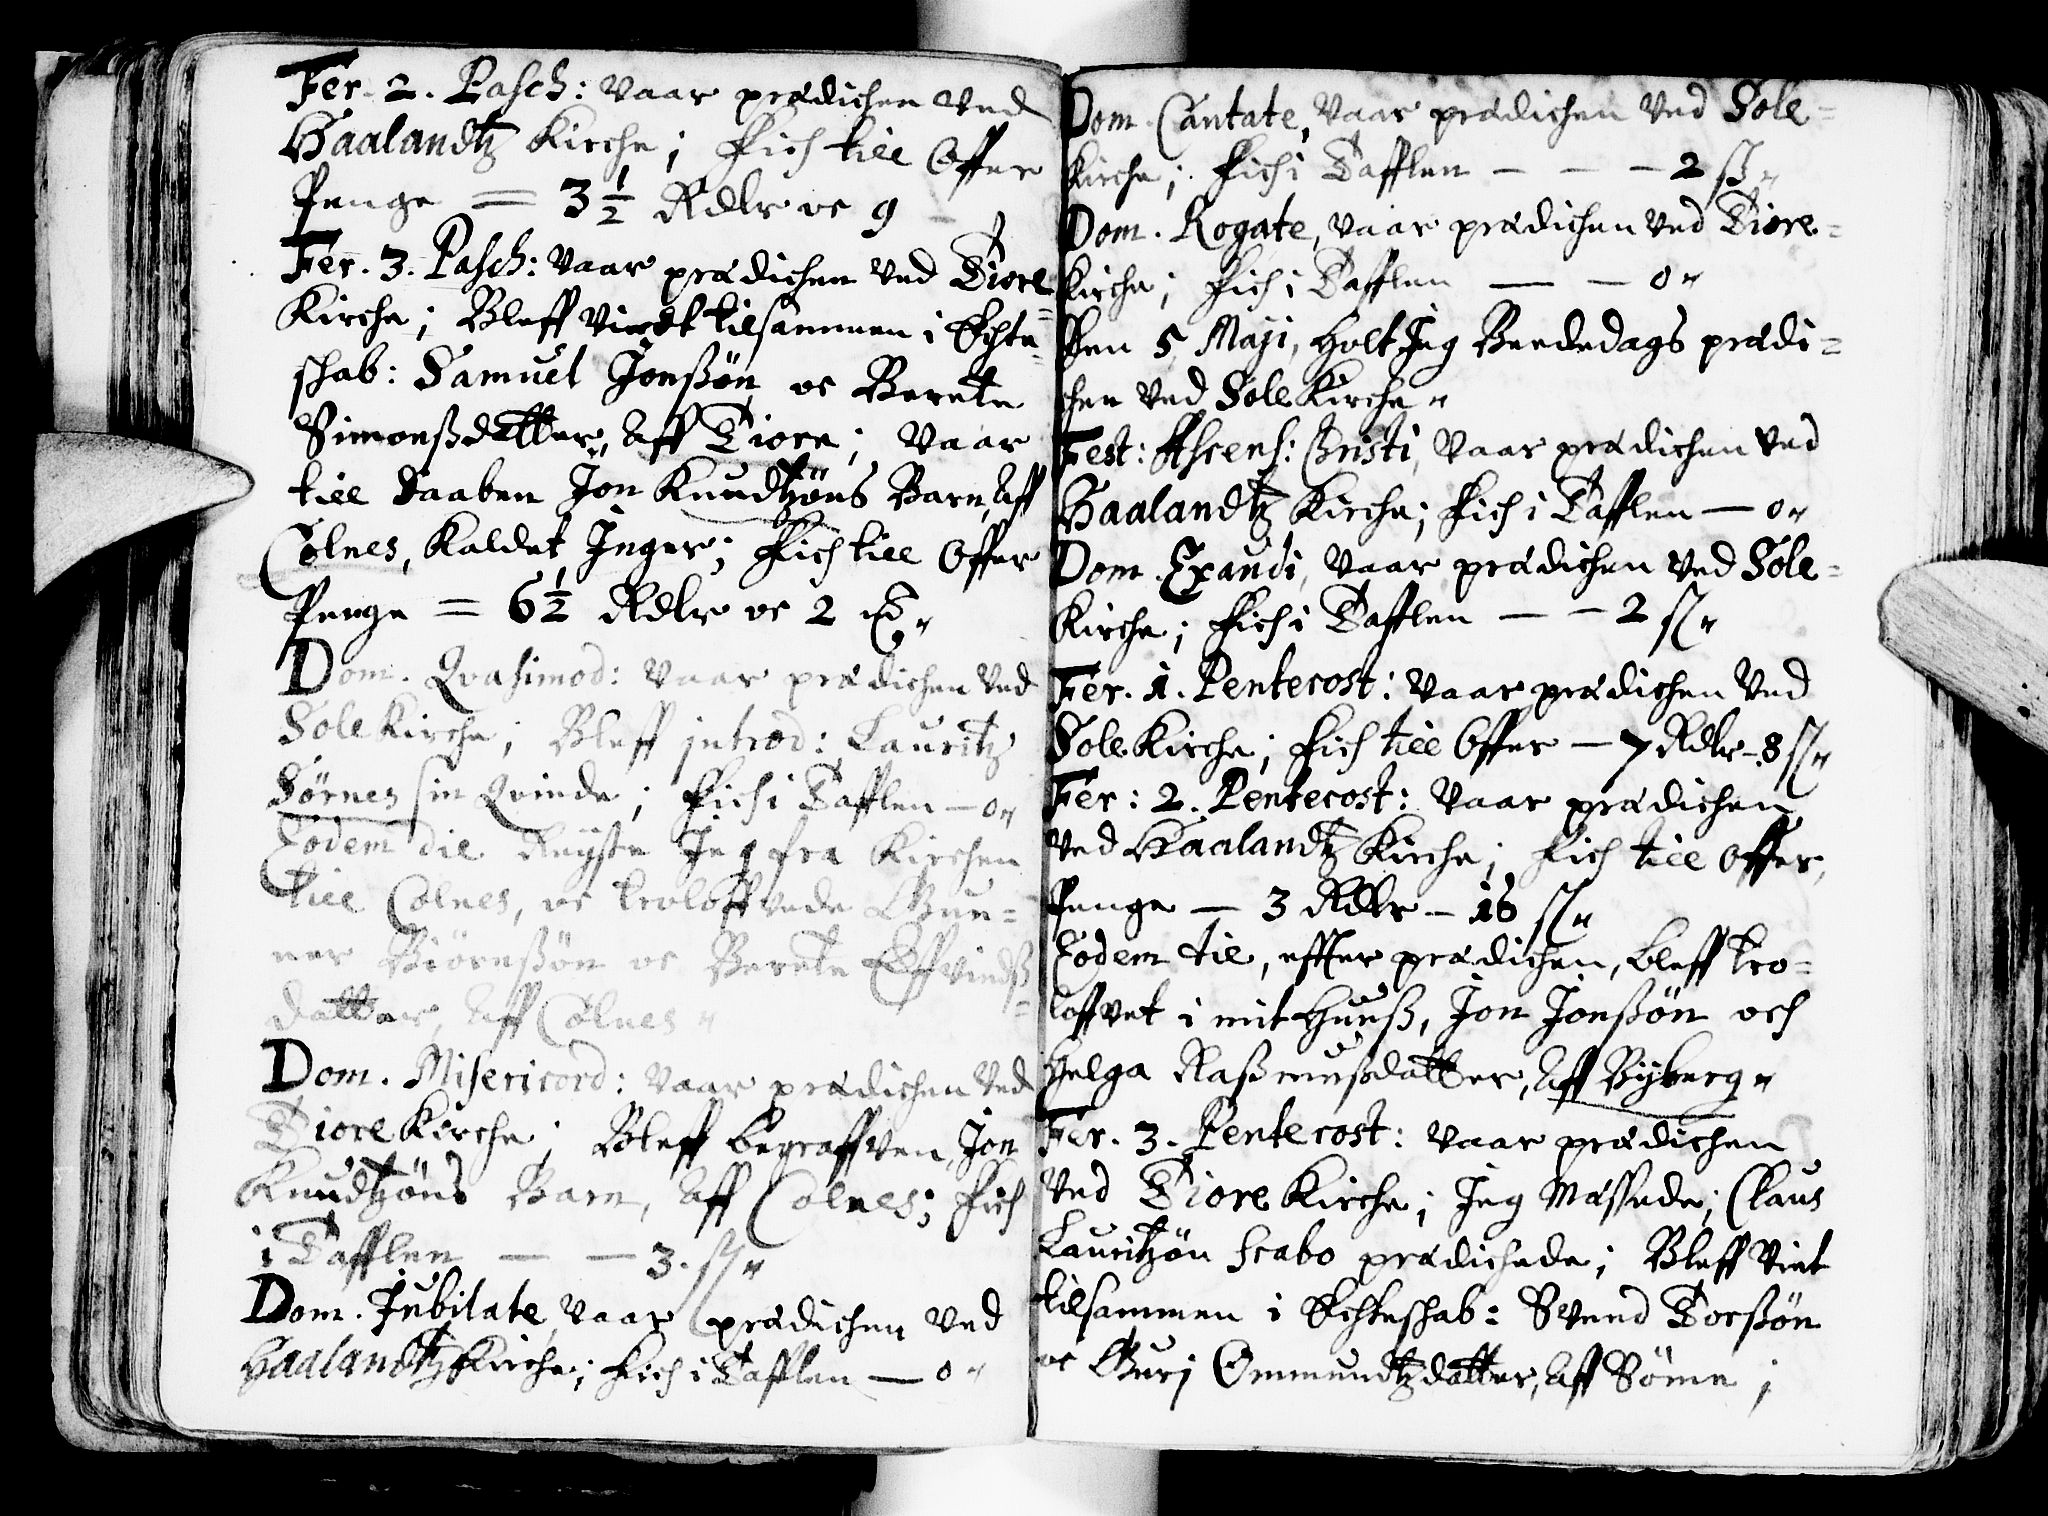 Fer. 2. Pasch: vaar prædichen ved
Haalandtz Kirche; Fich till Offer
Penge = 3½ Rdlr oc 9
Fer. 3. Pasch: vaar prædichen ved Tiore
Kirche; Bleff viedt tilsammen i Echte-
schab: Samuel Jonßøn oc Berete
Simonßdatter, Aff Tiore; Vaar
till Daaben Jon Knudtzøns Barn, Aff
Colnes, Kaldet Inger; Fich till Offer
Penge = 6½ Rdlr oc 2
Dom. Qvasimod: vaar prædichen ved
Sole Kirche; Bleff introd: Lauritz
Sørnes sin Qvinde; Fich i Tafflen — 0
Eodem die Reyste Jeg fra Kirchen
till Colnes, oc troloffvede Gun=
ner Biørnßøn oc Berete Effvindß
datter, Aff Colnes
Dom. Misericord: vaar prædichen ved
Tiore Kirche; Bleff begraffven, Jon
Knudtzøns Barn, Aff Colnes; Fich
i Tafflen — — 3. ß
Dom. Jubilate, vaar prædichen ved
Haalandtz Kirche; Fich i Tafflen — 0
Dom. Cantate, vaar prædichen ved Sole=
Kirche; Fich i Tafflen — — — 2 ß
Dom. Rogate, vaar prædichen ved Tiore=
Kirche; Fich i Tafflen — — 0
Den 5 Maji, Holt Jeg Beededags prædi=
chen ved Sole Kirche
Fest: Ascens: Christi, vaar prædichen ved
Haalandtz Kirche; Fich i Tafflen — 0
Dom. Exaudi, vaar prædichen ved Sole=
Kirche; Fich i Tafflen — — 2 ß
Fer. 1. Pentecost: vaar prædichen ved
Sole Kirche; Fich till Offer — 7 Rdlr - 8 ß
Fer: 2. Pentecost: vaar prædichen
ved Haalandtz Kirche; Fich till offer,
Penge — 3 Rdlr — 16 ß
Eodem die, effter prædichen, bleff tro=
loffvet i mit Huuß, Jon Jonßøn och
Helga Raßmußdatter, Aff Byberg
Fer. 3. Pentecost: vaar prædichen
ved Tiore Kirche; Jeg Messede; Claus
Lauritzøn Scabo prædichede; Bleff viet
tilsammen i Echteschab: Svend Torßøn
oc Gurj Ommundtzdatter, Aff Sømme;